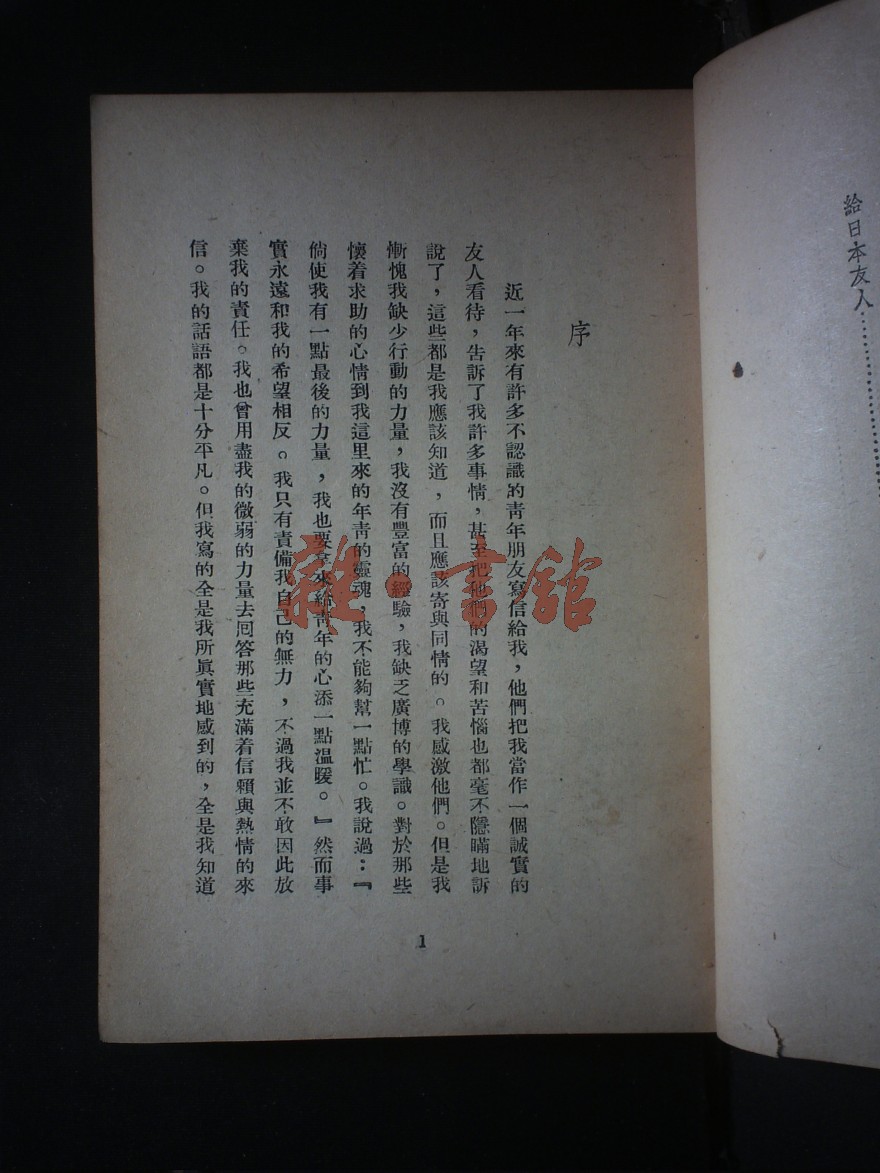 給日本友人
序
近一年來有許多不認識的靑年朋友寫信給我，他們把我當作一個誠實的
友人看待，告訴了我許多事情，甚至把他們的渴望和苦惱也都毫不隱瞞地訴
說了，這些都是我應該知道，而且應該寄與同情的。我感激他們。但是我
慚愧我缺少行動的力量，我沒有豐富的經驗，我缺乏廣博的學識。對於那些
懷着求助的心情到我這里來的年靑的靈魂，我不能夠幫一點忙。我說過：『
倘使我有一點最後的力量，我也要拿來給靑年的心添一點溫暖。』然而事
實永遠和我的希望相反。我只有責備我自己的無力，不過我並不敢因此放
棄我的責任。我也曾用盡我的微弱的力量去回答那些充滿着信賴與熱情的來
信。我的話語都是十分平凡。但我寫的全是我所眞實地感到的，全是我知道
1
雜·書館